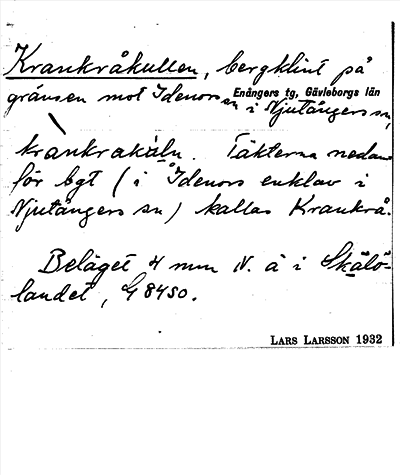 Krankråkullen, bergklint på
Enångers tg, Gävleborgs län
gränsen mot Idenors sn i Njutångers sn,
kraŋkrakäln. Täkterna nedan-
för bgt (i Idenors enklav i
Njutångers sn) kallas Krankrå.
Beläget 4 mm N. å i Skålö-
landet, G 8450.
LARS LARSSON 1932